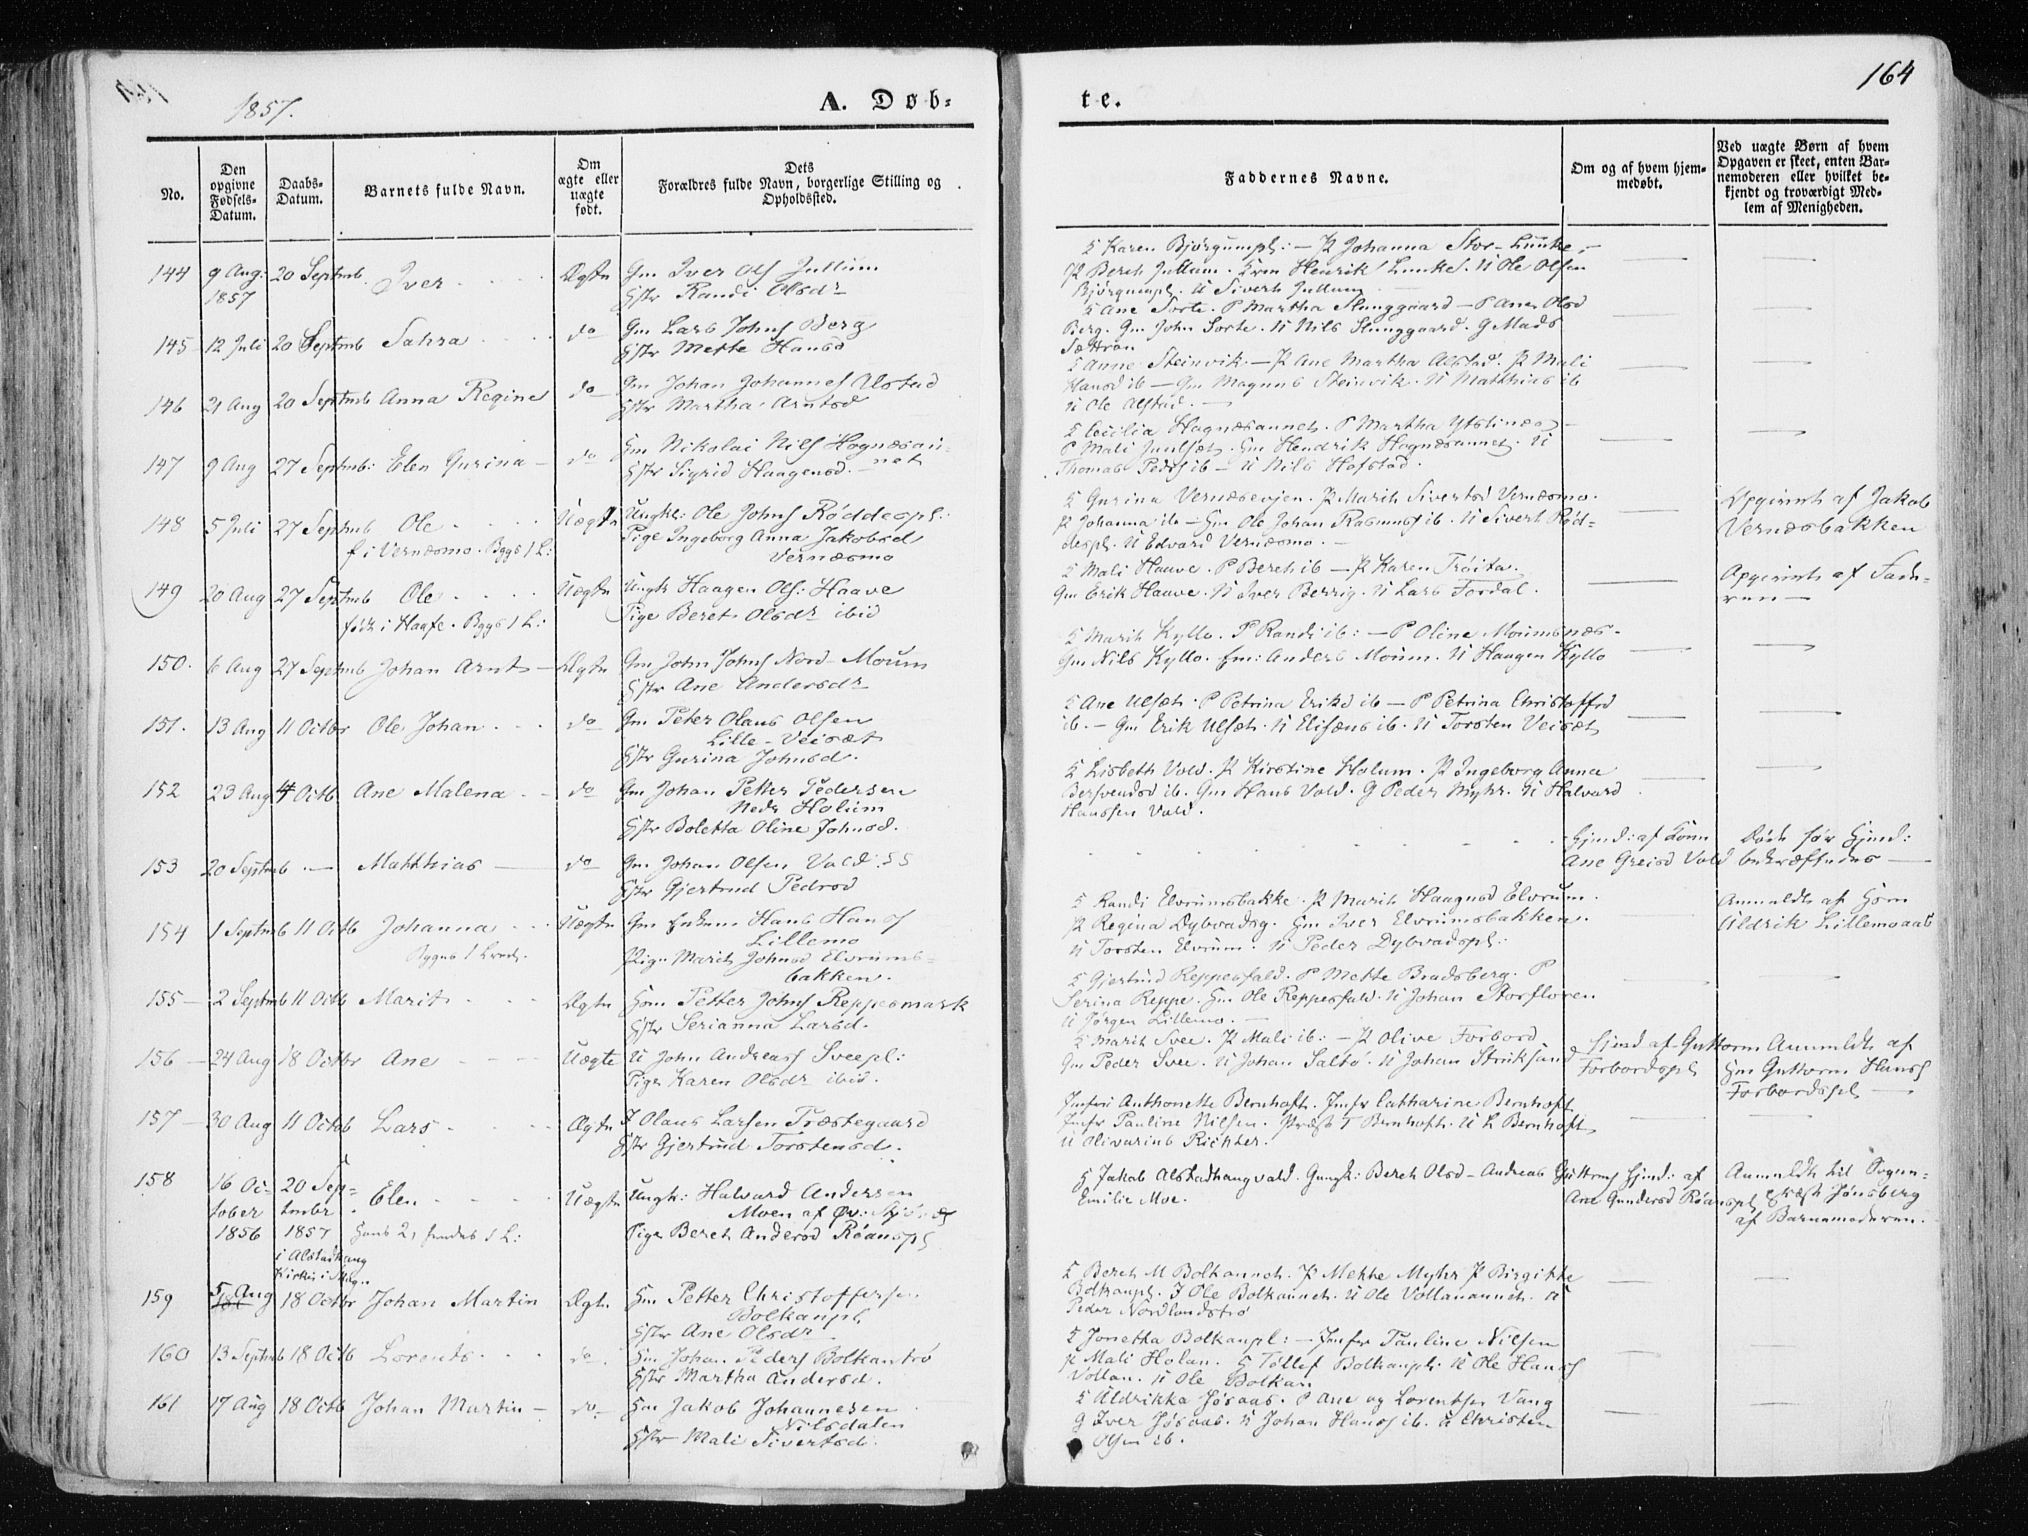 1857.
A. Døb-
te.
164
No.
Den opgivne Fødsels-Datum.
Daabs-Datum.
Barnets fulde Navn.
Om ægte eller uægte født.
Dets Forældres fulde Navn, borgerlige Stilling og Opholdssted.
Faddernes Navne.
Om og af hvem hjemmedøbt.
Ved uægte Børn af hvem Opgaven er skeet, enten Barnemoderen eller hvilket bekjendt og troværdigt Medlem af Menigheden.
144 9 Aug: 1857 20 Septemb. Iver Ægte Gm Iver Ols Jullum
Hstr Randi Olsdr
K Karen Bjørgumpl: — P Johanna Stor-Lunke —
P Bereth Jullum. Henrik Lunke. U Ole Olsen
Bjørgumpl. U Sivert Jullum
145 12 Juli 20 Septmb Sahra do Gm Lars Johns Berg
Hstr Mette Hansd
K Ane Sorte. P Martha Slunggaard — P Ane Olsd
Berg. Gm John Sorte. U Nils Slunggaard. G Mads
Sætran
146 21 Aug 20 Septmb Anna Regine do Gm Johan Johannes Alstad
Hstr Martha Arntsd
K Anne Steinvik — P Ane Martha Alstad. P Mali
Hansd ib — Gm Magnus Steinvik. U Matthias ib
U Ole Alstad.
147 9 Aug 27 Septmb: Elen Gurina do Gm Nikolai Nils Hognæsau-
net
Hstr Sigrid Haagensd.
K Cecilia Hognæsaunet. P Martha Ystinæs
P Mali. Gm Hendrik Hognæsaunet. U
Thomas Peders ib — U Nils Hofstad.
148 5 Juli 27 Septmb Ole Uægte Ungkl: Ole Johns Røddespl.
f i Vernæsmo. Bygs 1 L: Pige Ingeborg Anna Jakobsd
Vernæsmo
K Gurina Vernæsvejen. P Marith Sivertsd Vernæsmo.
P Johanna ib — Gm Ole Johan Rasmuss ib. U Sivert Rød-
despl. U Edvard Vernæsmo.
Opgivet af Jakob
Vernæsbakken
149 20 Aug 27 Septmb Ole Uægte Ungk Haagen Ols: Haave
født i Haafe. Bygs 1 L: Pige Beret Olsdr ibid
K Mali Haave. P Bereth ib — P Karen Trøite.
Gm Erik Haave. U Iver Berrig. U Lars Fordal.
Opgivet af Fad-
ren
150. 6 Aug 27 Septmb Johan Arnt Ægte Gm John Johns Nord-Moum
Hstr Ane Andersdr
K Marith Kyllo. P Randi ib: — P Oline Moumsnæs.
Gm Nils Kyllo. Gm: Anders Moum. U Haagen Kyllo
151. 13 Aug 11 Octbr Ole Johan do Gm Peter Olaus Olsen
Lille-Veisæt
Hstr Gurina Johnsd.
K Ane Ulsæt. P Petrina Eriksd ib — P Petrina Christoffrd
ib. — Gm Erik Ulsæt. U Elisæus ib. U Torsten Veisæt
152 23 Aug 4 Octb Ane Malena do Gm Johan Petter Pedersen
Nedr Holum
Hstr Boletta Oline Johnsd.
K Lisbeth Vold. P Kirstine Holum. P Ingeborg Anna
Bersvendsd ib. Gm Hans Vold. G Peder Myhr. U Halvard
Hanssen Vold.
153 20 Septmb Matthias do Gm Johan Olsen Vold
Hstr Gjertrud Pedrsd
Hjmd: af Konen
Ane Greisd Vold
Døde før Hjmd:
bekræftedes
154 1 Septmb 11 Octb Johanna Uægte Gm Hans Hans
Lillemo
Pige Marith Johnsd Elvrums-
bakken.
K Randi Elvrumsbakke. P Marith Haagensd Elvrum.
P Regina Dybvadsg. Gm Iver Elvrumsbakken.
U Torsten Elvrum. U Peder Dybvadspl:
Anmeldt af Gm
Aldrik Lillemoaas
155 2 Septmb 11 Octb Marit Ægte Gm Petter Johns Reppesmark
Hstr Serianna Larsd.
K Gjertrud Reppesfald. P Mette Bradsberg. P
Serina Reppe. Gm Ole Reppesfald. U Johan Storfloren
U Jørgen Lillemo.
156 24 Aug 18 Octbr Ane Uægte U John Andreas Sveepl:
Pige Karen Olsdr ibid.
K Marit Svee. P Mali ib: — P Olive Forbord
Gm Peder Svee. U Johan Saltø. U Johan
Hjmd af Guttorm
Forbordspl
Anmeldt af
Gm Guttorm Hans
Forbordspl
157 30 Aug 11 Octob Lars Ægte I Olaus Larsen Træstegaard
Hstr Gjertrud Torstensd.
Jmfru Anthonette Bernhoft. Jmfr Catharine Bernhoft
Jmfr Pauline Nilsen. Præst T Bernhoft. U L Bernhoft
U Olivarius Richter.
158 16 October 1856 20 September 1857 Elen Uægte Ungk: Halvard Andersen
i Alstadhaug
Kirke i Skogn
Moen af
Pige Bereth Andersd Røanspl
G Jakob Alstadhaugvald. Bereth Olsd — Andreas Guttorms
Emilie Moe.
Hjmd: af
Ane Gundersd Røanspl
Anmeldt til Sogne-
præst Jønsberg
af Barnemoderen.
159 5 Aug 18 Octbr Johan Martin Ægte Gm Petter Christoffersen
Bolkanpl
Hstr Ane Olsdr
K Bereth M Bolkaunet. P Mette Myhr P Birgitte
Bolkanpl. I Ole Bolkaunet. U Ole Vollanaunet. U
Peder Nordlandstrø
160 13 Septmb 18 Octb Lorents do Gm Johan Peders Bolkantrø
Hstr Martha Andersd.
K Jonetta Bolkanpl: — Jmfr Pauline Nilsen
P Mali Holan. G Tøllef Bolkanpl. U Ole Hans
Vollan. U Ole Bolkan
161 17 Aug 18 Octb Johan Martin do Gm Jakob Johannesen
Nilsdalen
Hstr Mali Sivertsd.
K Aldrikka Høsaas. P Ane og Lorentsen Vang
G Iver Høsaas. U Johan Hans ib. U Christen
Olsen ib.